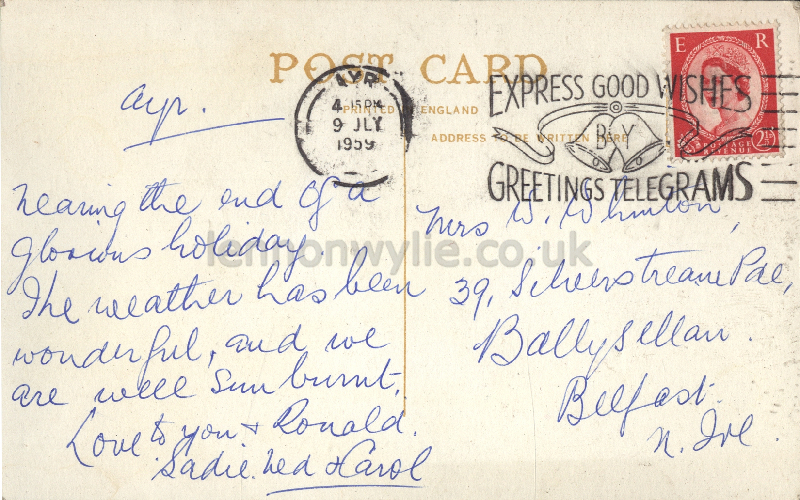 POST CARD
PRINTED ENGLAND
ADDRESS TO BE WRITTEN HERE
AYR
4. 15 PM
9 JLY
1959
EXPRESS GOOD WISHES
BY
GREETINGS TELEGRAMS
E R
2½
POSTAGE
REVENUE
Ayr.
Nearing the end of a
glorious holiday
The weather has been
wonderful, and we
are well sun burnt.
Love to you + Ronald.
Sadie. Ned & Carol
Mrs W.
39, Silverstream Pde,
Ballysillan.
Belfast.
N. Ire.
lennonwylie.co.uk